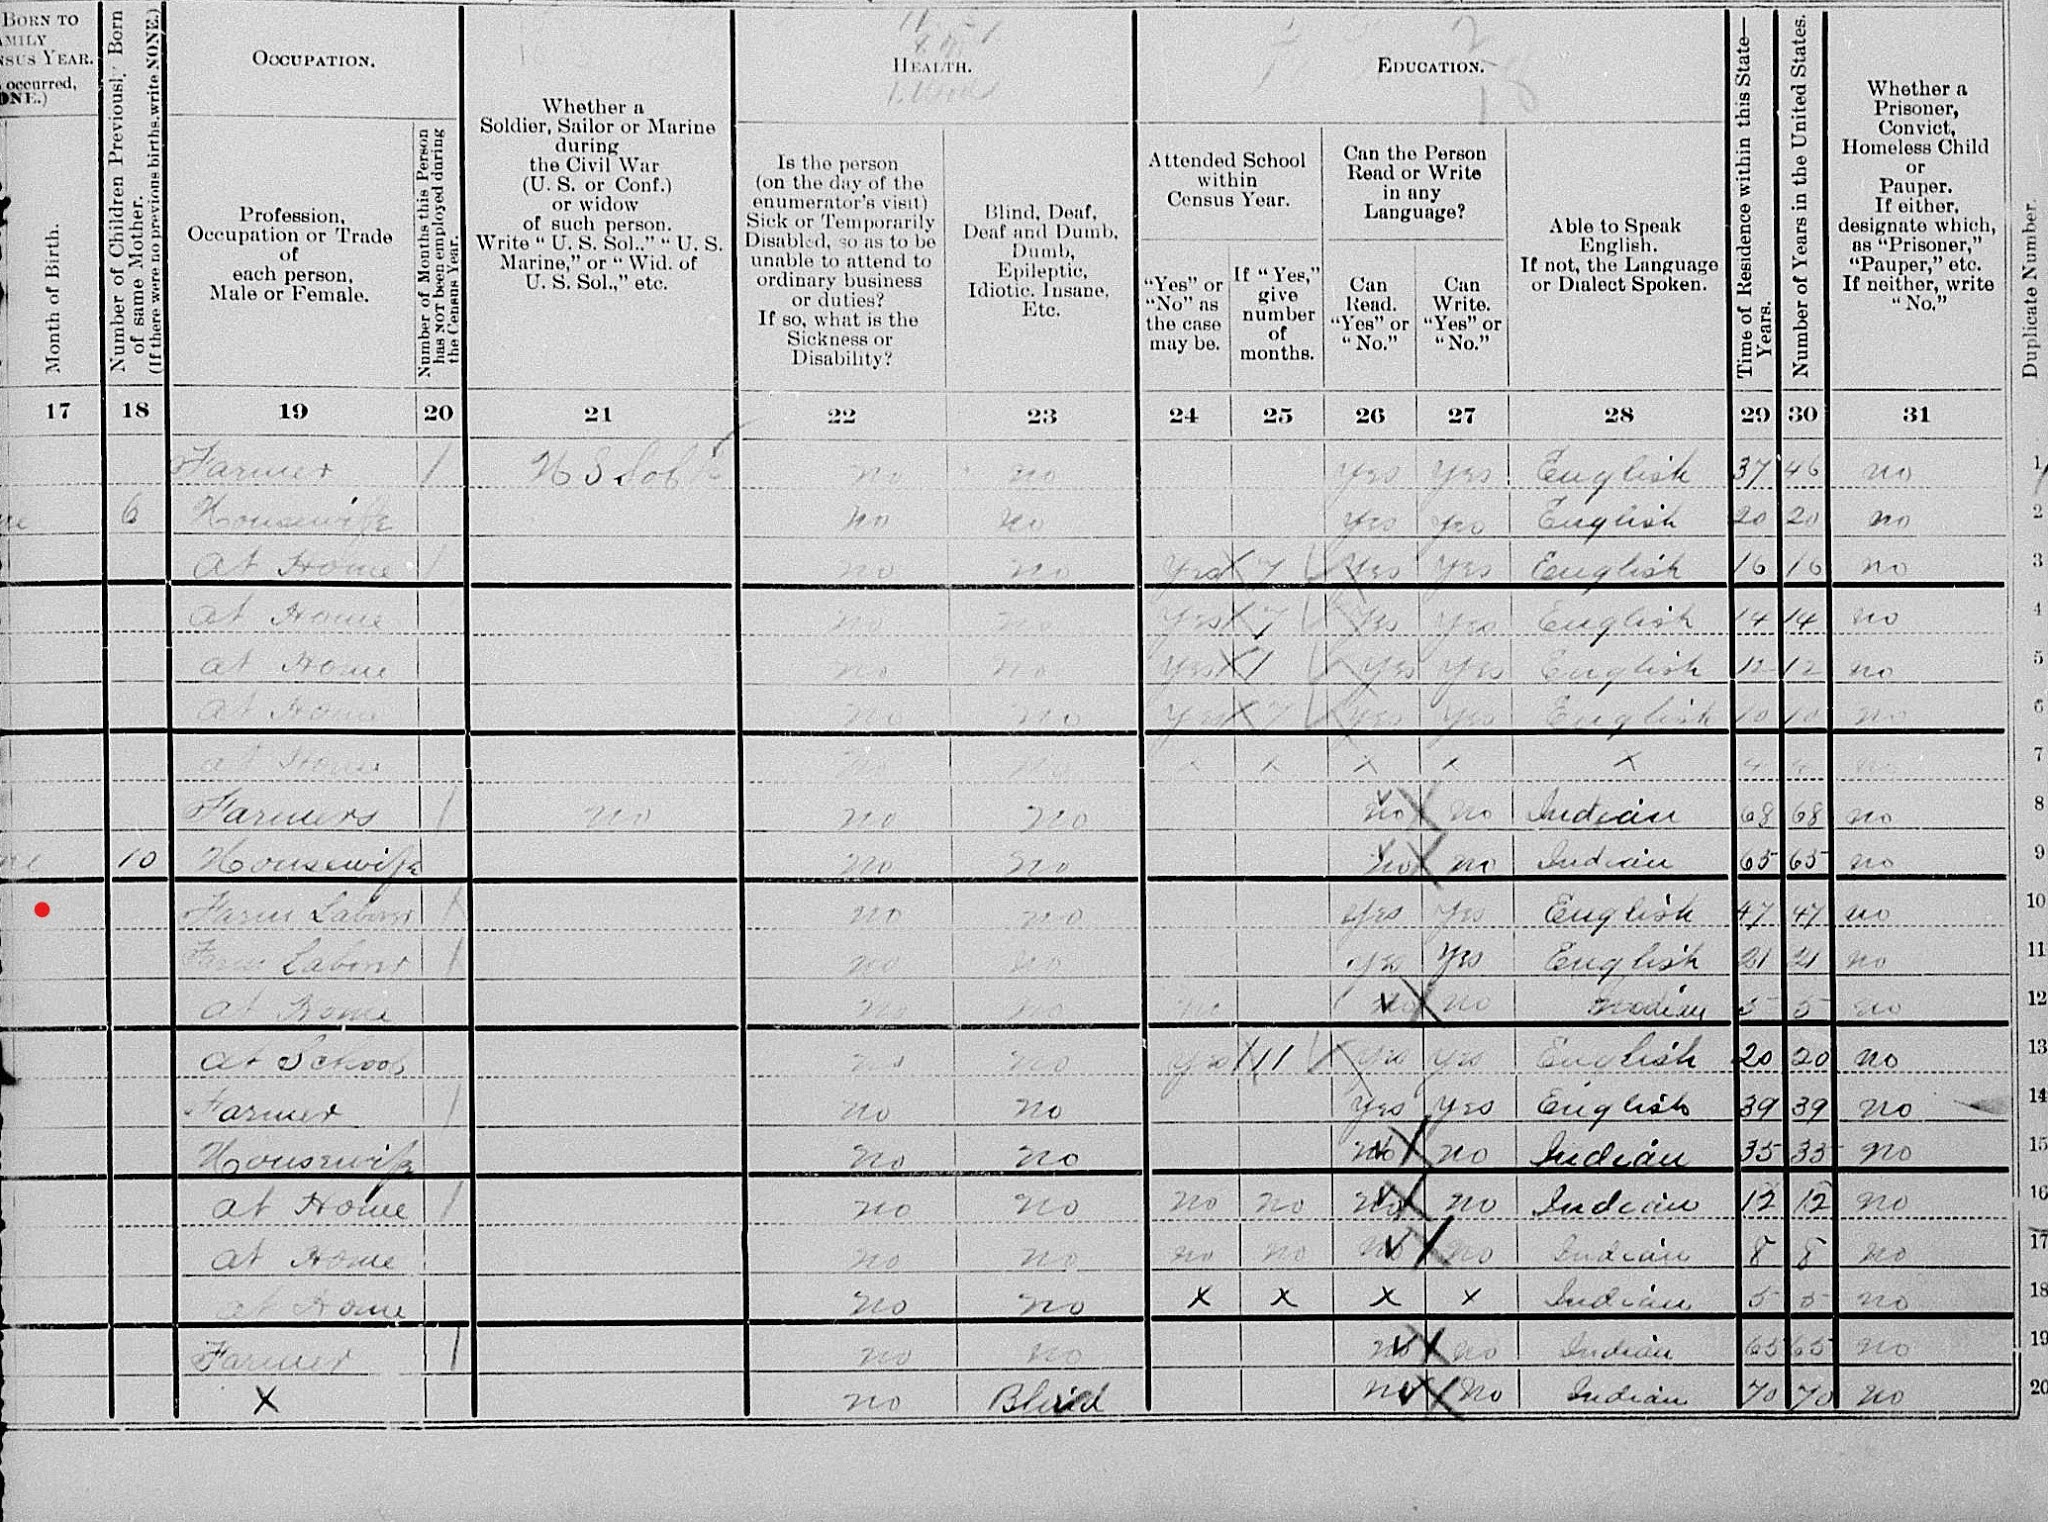 BORN TO
AMILY
NSUS YEAR.
occurred,
ONE.)
Month of Birth.
Number of Children Previously Born
of same Mother.
(If there were no previous births, write NONE.)
OCCUPATION.
Profession,
Occupation or Trade
of
each person,
Male or Female.
Number of Months this Person
has NOT been employed during
the Census Year.
Whether a
Soldier, Sailor or Marine
during
the Civil War
(U. S. or Conf.)
or widow
of such person.
Write "U. S. Sol.," "U. S.
Marine," or "Wid. of
U. S. Sol.," etc.
HEALTH.
Is the person
(on the day of the
enumerator's visit)
Sick or Temporarily
Disabled, so as to be
unable to attend to
ordinary business
or duties?
If so, what is the
Sickness or
Disability?
Blind, Deaf,
Deaf and Dumb,
Dumb,
Epileptic,
Idiotic, Insane,
Etc.
EDUCATION.
Attended School
within
Census Year.
"Yes" or
"No" as
the case
may be.
If "Yes,"
give
number
of
months.
Can the Person
Read or Write
in any
Language?
Can
Read.
"Yes" or
"No."
Can
Write.
"Yes" or
"No."
Able to Speak
English.
If not, the Language
or Dialect Spoken.
Time of Residence within this State—
Years.
Number of Years in the United States.
Whether a
Prisoner,
Convict,
Homeless Child
or
Pauper.
If either,
designate which,
as "Prisoner,"
"Pauper," etc.
If neither, write
"No."
Duplicate Number.
17 18 19 20 21 22 23 24 25 26 27 28 29 30 31
Farmer / no no Yes Yes English 37 46 no 1
6 Housewife no no Yes Yes English 20 20 no 2
at Home / no no Yes 7 Yes Yes English 16 16 no 3
at Home no no Yes 7 Yes Yes English 14 14 no 4
at Home no no Yes Yes Yes English 12 12 no 5
at Home no no Yes 7 Yes Yes English 10 10 no 6
at Home no no x x x x x 4 4 no 7
Farmers / no no no no no Indian 68 68 no 8
10 Housewife no no no no Indian 65 65 no 9
Farm Laborer / no no Yes Yes English 47 47 no 10
Farm Laborer / no no Yes Yes English 21 21 no 11
at Home no no no no no Indian 5 5 no 12
at School no no Yes 11 Yes Yes English 20 20 no 13
Farmer / no no Yes Yes English 39 39 no 14
Housewife no no no no Indian 35 35 no 15
at Home / no no no no no no Indian 12 12 no 16
at Home no no no no no no Indian 8 8 no 17
at Home no no x x x x Indian 5 5 no 18
Farmer / no no no no Indian 65 65 no 19
X no Blind no no Indian 70 70 no 20